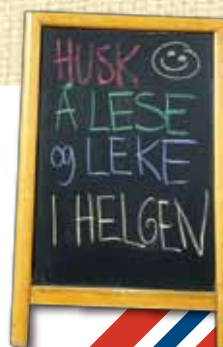 HUSK
Å LESE
og LEKE
I HELGEN